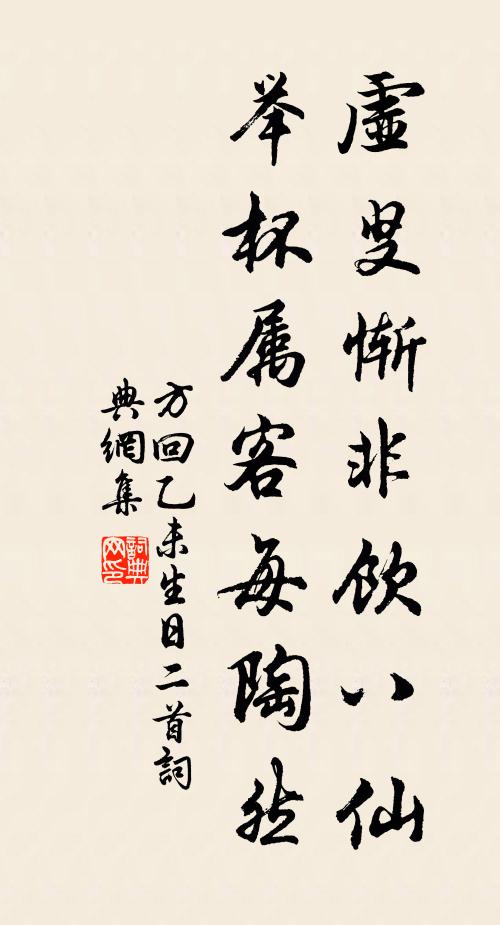 虛叟慚非飲八仙
举杯属客每陶然
方回乙未生日二首詞
典網集
詞典
网印